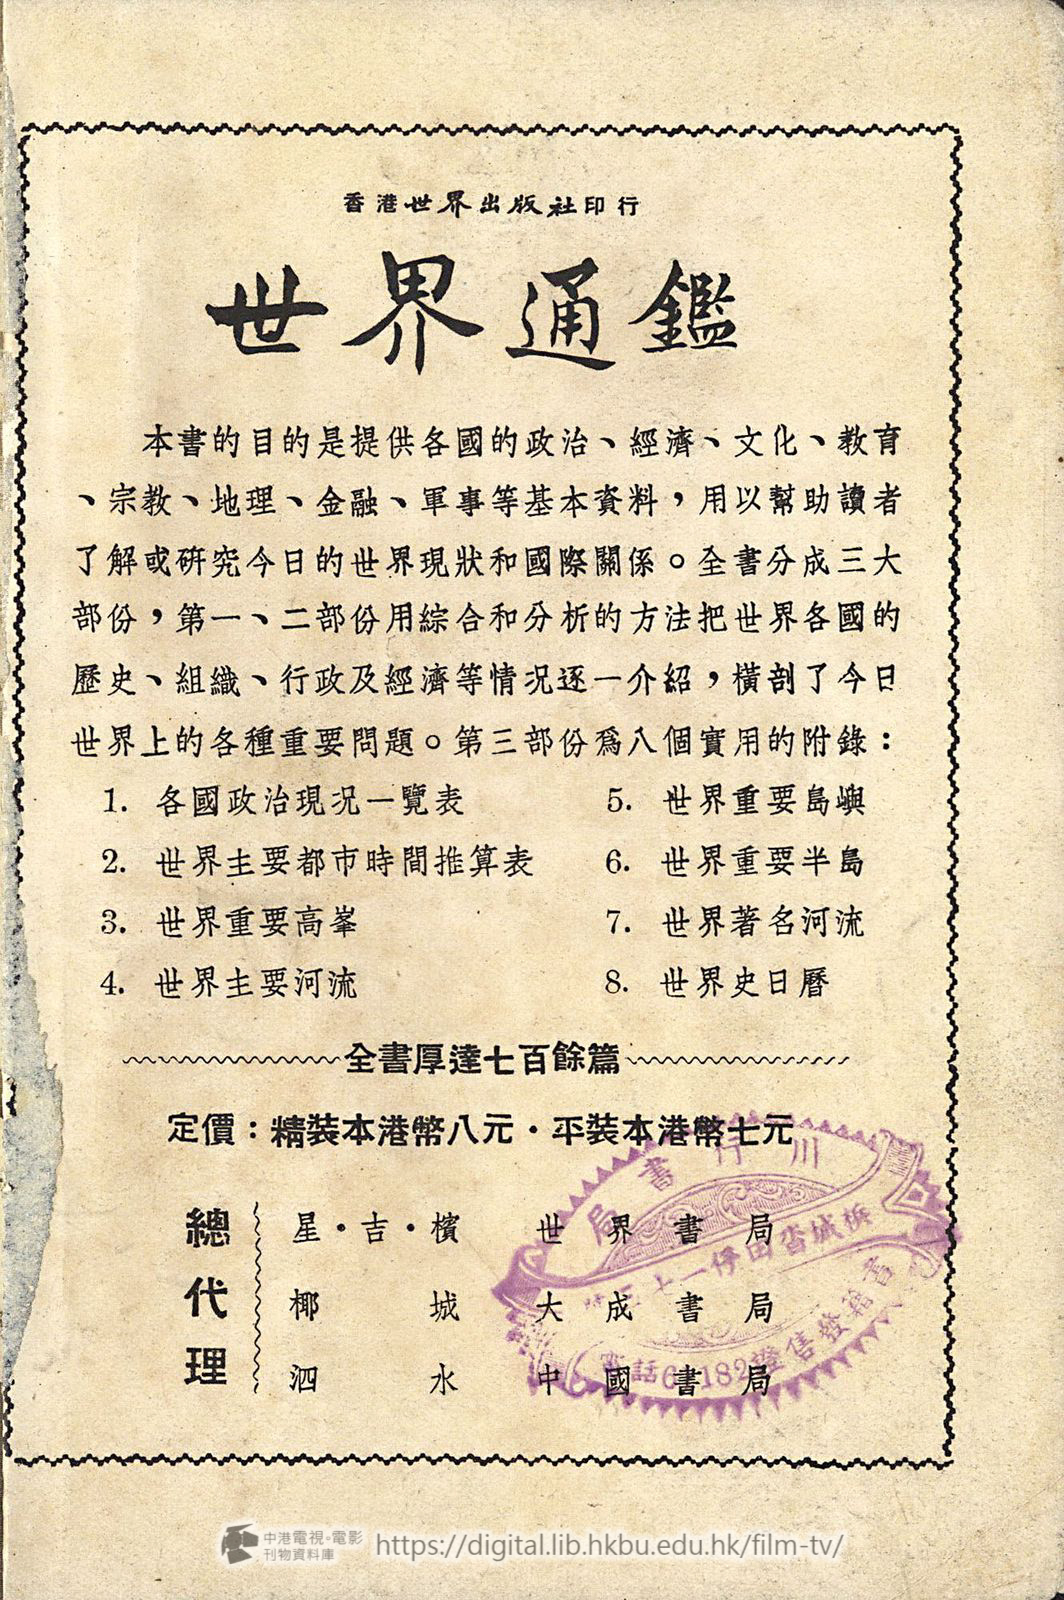 香港世界出版社印行
世界通鑑
本書的目的是提供各國的政治、經濟、文化、教育
、宗教、地理、金融、軍事等基本資料，用以幫助讀者
了解或研究今日的世界現狀和國際關係。全書分成三大
部份，第一、二部份用綜合和分析的方法把世界各國的
歷史、組織、行政及經濟等情況逐一介紹，橫剖了今日
世界上的各種重要問題。第三部份爲八個實用的附錄：
1. 各國政治現況一覽表
2. 世界主要都市時間推算表
3. 世界重要高峯
4. 世界主要河流
5. 世界重要島嶼
6. 世界重要半島
7. 世界著名河流
8. 世界史日曆
全書厚達七百餘篇
定價：精裝本港幣八元・平裝本港幣七元
總代理
星・吉・檳 世界書局
椰城 大成書局
泗水 中國書局
書局
電話
售發籍書
中港電視・電影
刊物資料庫
https://digital.lib.hkbu.edu.hk/film-tv/